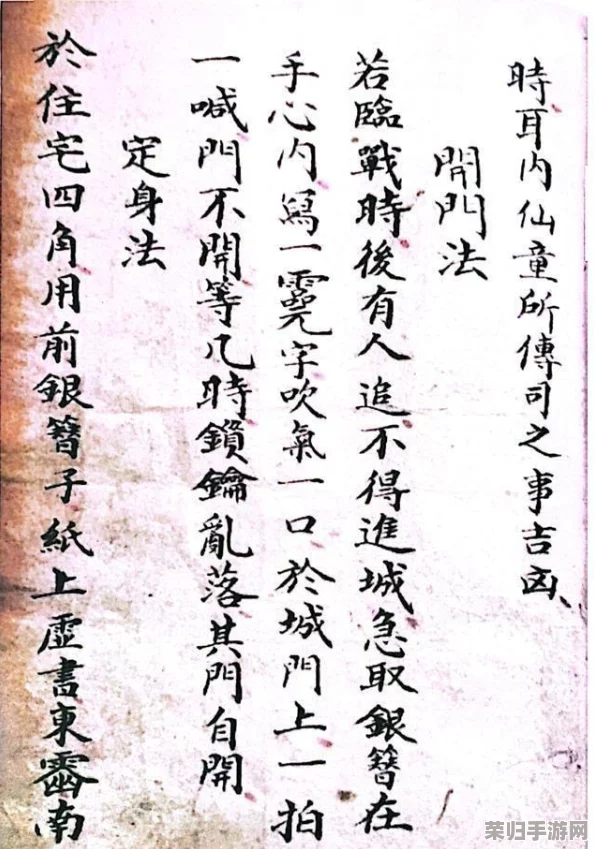 時耳内仙童所傳司之事吉凶
開門法
若臨戰時後有人追不得進城急取銀簪在
手心内寫一字吹氣一口於城門上一拍
一喊門不開等几時鎖鑰亂落其門自開
定身法
於住宅四角用前銀簪子紙上虛書東南
荣归手游网